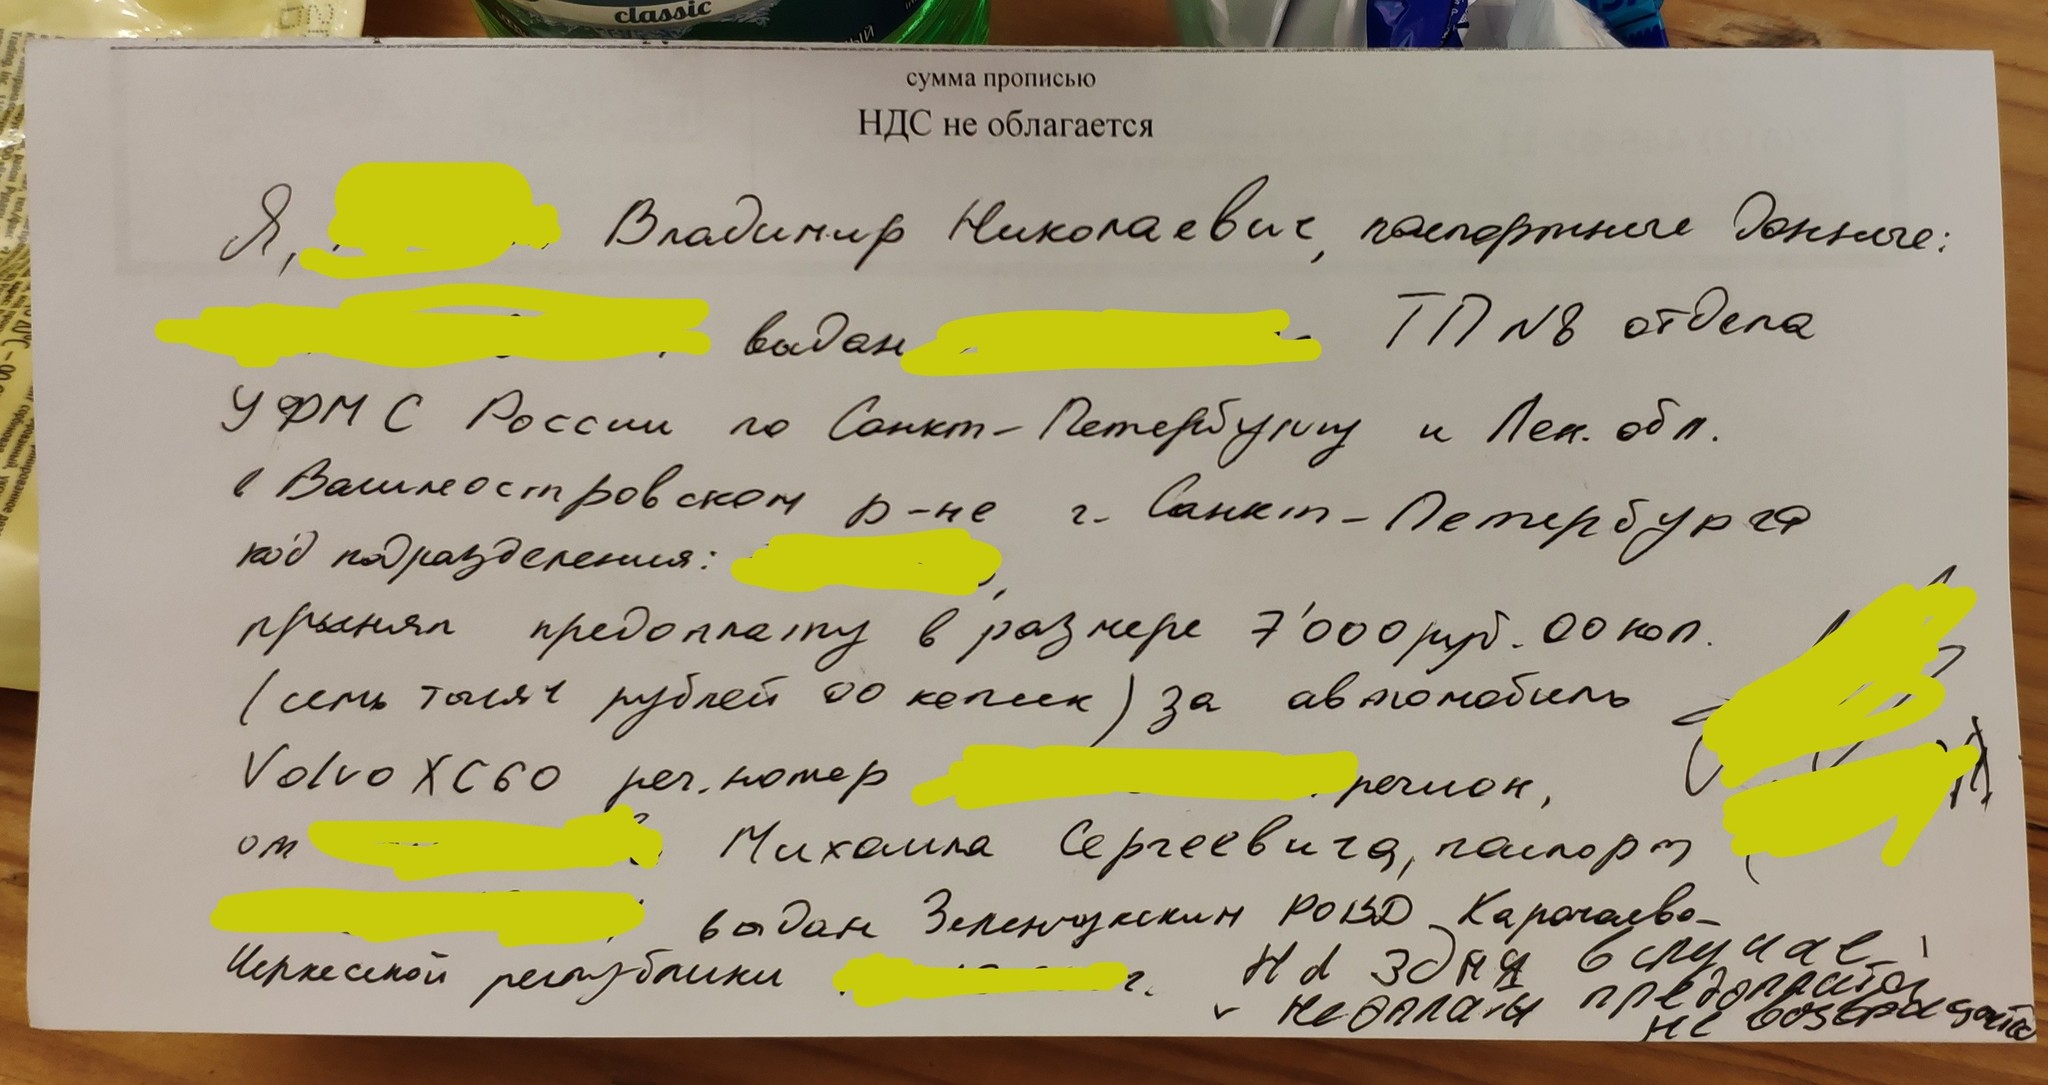 classic
сумма прописью
НДС не облагается
Я, Владимир Николаевич, паспортные данные:
выдан ТП №8 отдела
УФМС России по Санкт-Петербургу и Лен. обл.
в Василеостровском р-не г. Санкт-Петербурга
код подразделения:
принял предоплату в размере 7'000 руб. 00 коп.
(семь тысяч рублей 00 копеек) за автомобиль
Volvo XC60 рег. номер регион,
от Михаила Сергеевича, паспорт
выдан Зеленчукским РОВД Карачаево-
Черкесской республики г.
На 3 дня в случае
неоплаты предоплата
не возвращается